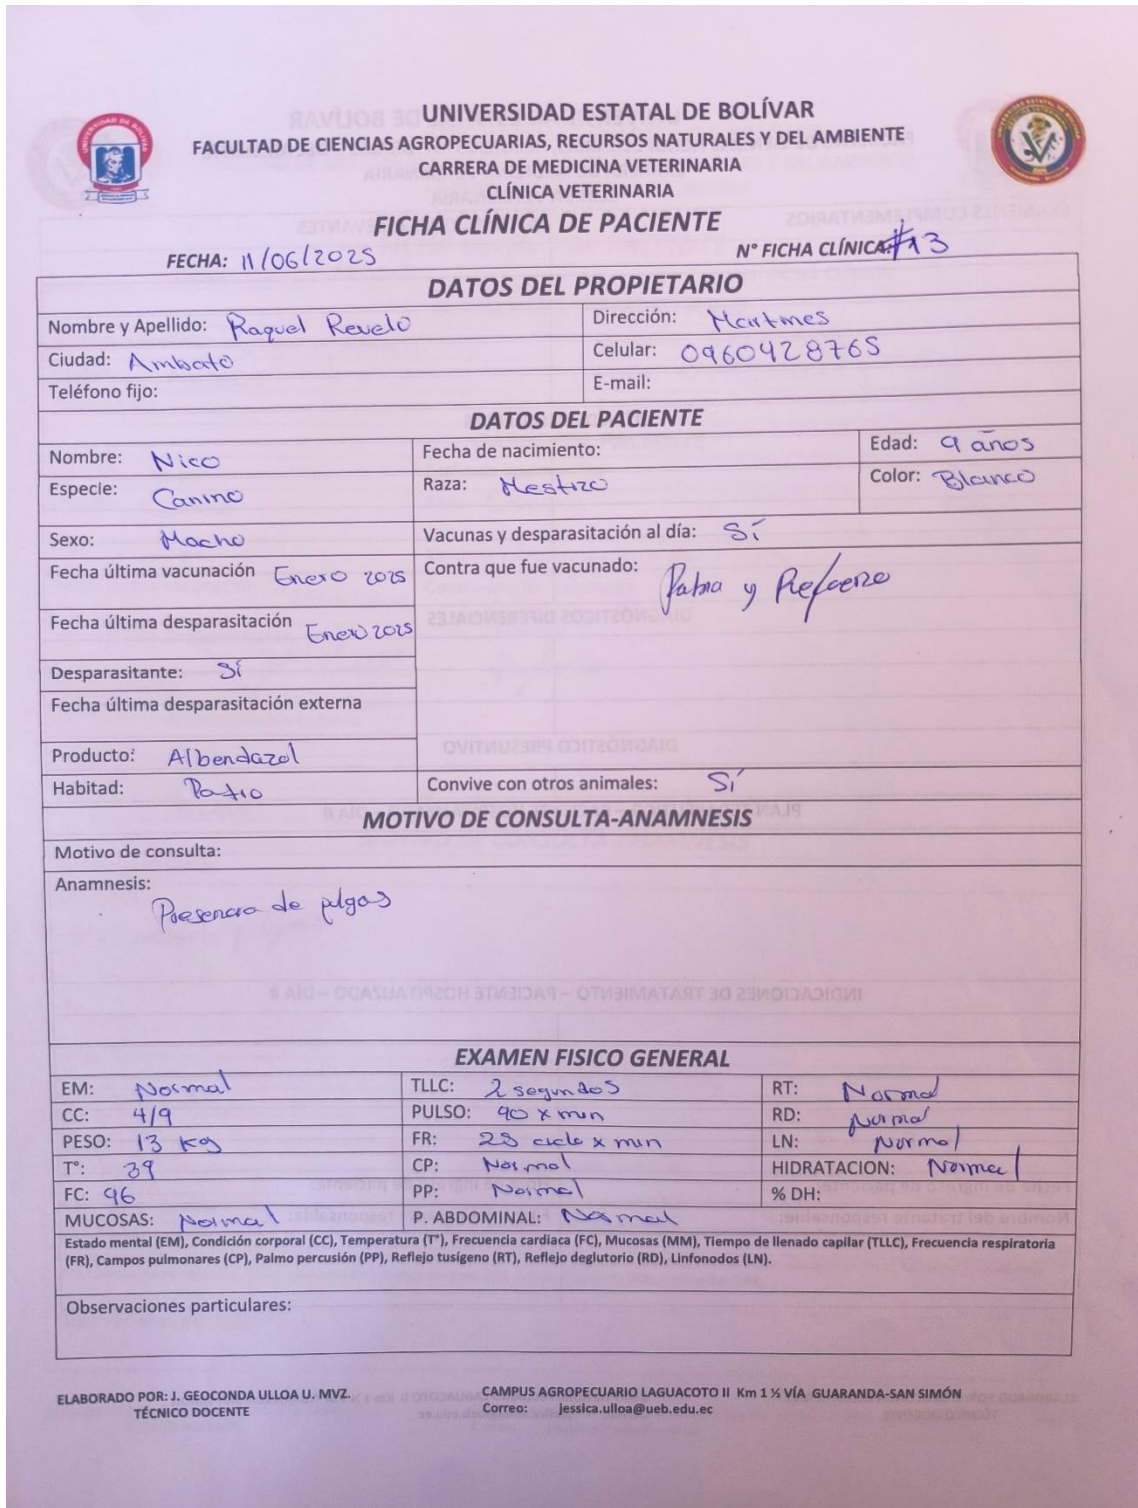 UNIVERSIDAD ESTATAL DE BOLÍVAR
FACULTAD DE CIENCIAS AGROPECUARIAS, RECURSOS NATURALES Y DEL AMBIENTE
CARRERA DE MEDICINA VETERINARIA
CLÍNICA VETERINARIA
FICHA CLÍNICA DE PACIENTE
FECHA: 11/06/2025 N° FICHA CLÍNICA: #13
DATOS DEL PROPIETARIO
Nombre y Apellido: Raquel Revelo Dirección:
Ciudad: Ambato Celular: 0960428765
Teléfono fijo: E-mail:
DATOS DEL PACIENTE
Nombre: Nico Fecha de nacimiento: Edad: 9 años
Especie: Canino Raza: Mestizo Color: Blanco
Sexo: Macho Vacunas y desparasitación al día: Sí
Fecha última vacunación Enero 2025 Contra que fue vacunado: Rabia y Refuerzo
Fecha última desparasitación Enero 2025
Desparasitante: Sí
Fecha última desparasitación externa
Producto: Albendazol
Habitad: Patio Convive con otros animales: Sí
MOTIVO DE CONSULTA-ANAMNESIS
Motivo de consulta:
Anamnesis:
Presencia de pulgas
EXAMEN FISICO GENERAL
EM: Normal TLLC: 2 segundos RT: Normal
CC: 4/9 PULSO: 90 x min RD: Normal
PESO: 13 kg FR: 28 ciclo x min LN: Normal
T°: 39 CP: Normal HIDRATACION: Normal
FC: 96 PP: Normal % DH:
MUCOSAS: Normal P. ABDOMINAL: Normal
Estado mental (EM), Condición corporal (CC), Temperatura (T°), Frecuencia cardiaca (FC), Mucosas (MM), Tiempo de llenado capilar (TLLC), Frecuencia respiratoria
(FR), Campos pulmonares (CP), Palmo percusión (PP), Reflejo tusígeno (RT), Reflejo deglutorio (RD), Linfonodos (LN).
Observaciones particulares:
ELABORADO POR: J. GEOCONDA ULLOA U. MVZ. CAMPUS AGROPECUARIO LAGUACOTO II Km 1 ½ VÍA GUARANDA-SAN SIMÓN
TÉCNICO DOCENTE Correo: jessica.ulloa@ueb.edu.ec